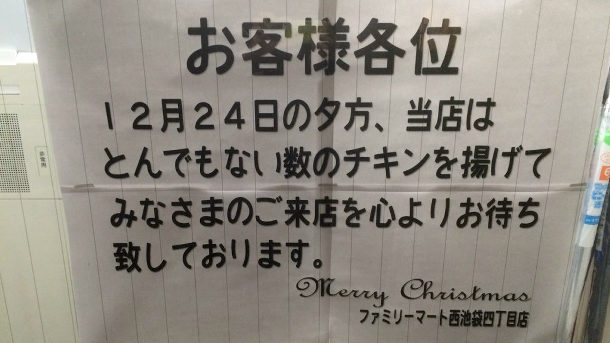 お客様各位
12月24日の夕方、当店は
とんでもない数のチキンを揚げて
みなさまのご来店を心よりお待ち
致しております。
Merry Christmas
ファミリーマート西池袋四丁目店